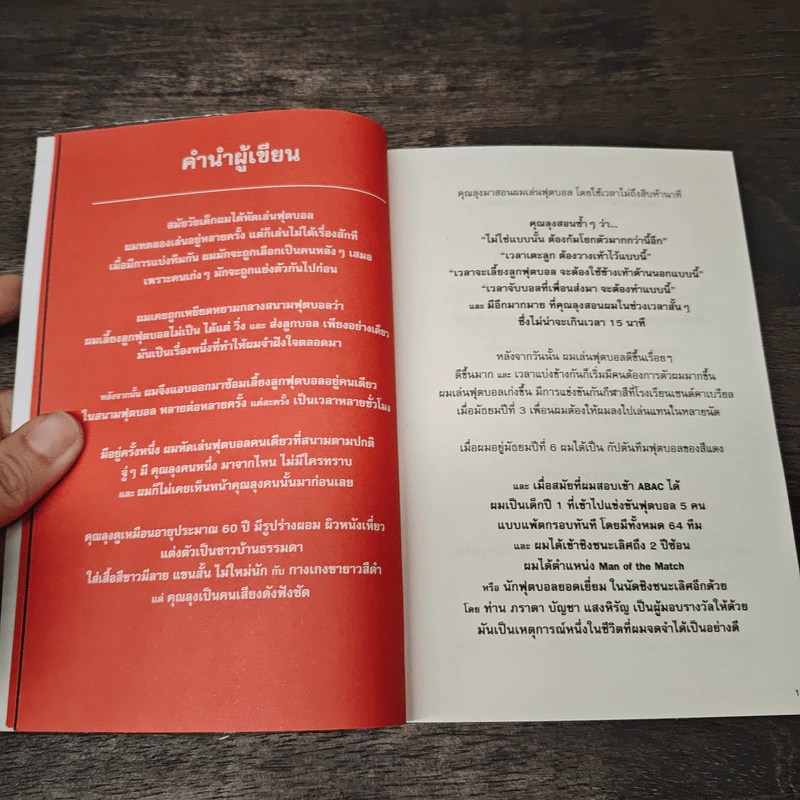 คำนำผู้เขียน
สมัยวัยเด็กผมได้หัดเล่นฟุตบอล
ผมทดลองเล่นอยู่หลายครั้ง แต่ก็เล่นไม่ได้เรื่องสักที
เมื่อมีการแบ่งทีมกัน ผมมักจะถูกเลือกเป็นคนหลังๆ เสมอ
เพราะคนเก่งๆ มักจะถูกแย่งตัวกันไปก่อน
ผมเคยถูกเหยียดหยามกลางสนามฟุตบอลว่า
ผมเลี้ยงลูกฟุตบอลไม่เป็น ได้แต่ วิ่ง และ ส่งลูกบอล เพียงอย่างเดียว
มันเป็นเรื่องหนึ่งที่ทำให้ผมจำฝังใจตลอดมา
หลังจากนั้น ผมจึงแอบออกมาซ้อมเลี้ยงลูกฟุตบอลอยู่คนเดียว
ในสนามฟุตบอล หลายต่อหลายครั้ง แต่ละครั้ง เป็นเวลาหลายชั่วโมง
มีอยู่ครั้งหนึ่ง ผมหัดเล่นฟุตบอลคนเดียวที่สนามตามปกติ
จู่ๆ มี คุณลุงคนหนึ่ง มาจากไหน ไม่มีใครทราบ
และ ผมก็ไม่เคยเห็นหน้าคุณลุงคนนั้นมาก่อนเลย
คุณลุงดูเหมือนอายุประมาณ 60 ปี มีรูปร่างผอม ผิวหนังเหี่ยว
แต่งตัวเป็นชาวบ้านธรรมดา
ใส่เสื้อสีขาวมีลาย แขนสั้น ไม่ใหม่นัก กับ กางเกงขายาวสีดำ
แต่ คุณลุงเป็นคนเสียงดังฟังชัด
คุณลุงมาสอนผมเล่นฟุตบอล โดยใช้เวลาไม่ถึงสิบห้านาที
คุณลุงสอนซ้ำๆ ว่า...
"ไม่ใช่แบบนั้น ต้องก้มโยกตัวมากกว่านี้อีก"
"เวลาเตะลูก ต้องวางเท้าไว้แบบนี้"
"เวลาจะเลี้ยงลูกฟุตบอล จะต้องใช้ข้างเท้าด้านนอกแบบนี้"
"เวลาจับบอลที่เพื่อนส่งมา จะต้องทำแบบนี้"
และ มีอีกมากมาย ที่คุณลุงสอนผมในช่วงเวลาสั้นๆ
ซึ่งไม่น่าจะเกินเวลา 15 นาที
หลังจากวันนั้น ผมเล่นฟุตบอลดีขึ้นเรื่อยๆ
ดีขึ้นมาก และ เวลาแบ่งข้างกันก็เริ่มมีคนต้องการตัวผมมากขึ้น
ผมเล่นฟุตบอลเก่งขึ้น มีการแข่งขันกีฬาสีที่โรงเรียนเซนต์คาเบรียล
เมื่อมัธยมปีที่ 3 เพื่อนผมต้องให้ผมลงไปเล่นแทนในหลายนัด
เมื่อผมอยู่มัธยมปีที่ 6 ผมได้เป็น กัปตันทีมฟุตบอลของสีแดง
และ เมื่อสมัยที่ผมสอบเข้า ABAC ได้
ผมเป็นเด็กปี 1 ที่เข้าไปแข่งขันฟุตบอล 5 คน
แบบแพ้ตกรอบทันที โดยมีทั้งหมด 64 ทีม
และ ผมได้เข้าชิงชนะเลิศถึง 2 ปีซ้อน
ผมได้ตำแหน่ง Man of the Match
หรือ นักฟุตบอลยอดเยี่ยม ในนัดชิงชนะเลิศอีกด้วย
โดย ท่าน ภราดา บัญชา แสงหิรัญ เป็นผู้มอบรางวัลให้ด้วย
มันเป็นเหตุการณ์หนึ่งในชีวิตที่ผมจดจำได้เป็นอย่างดี